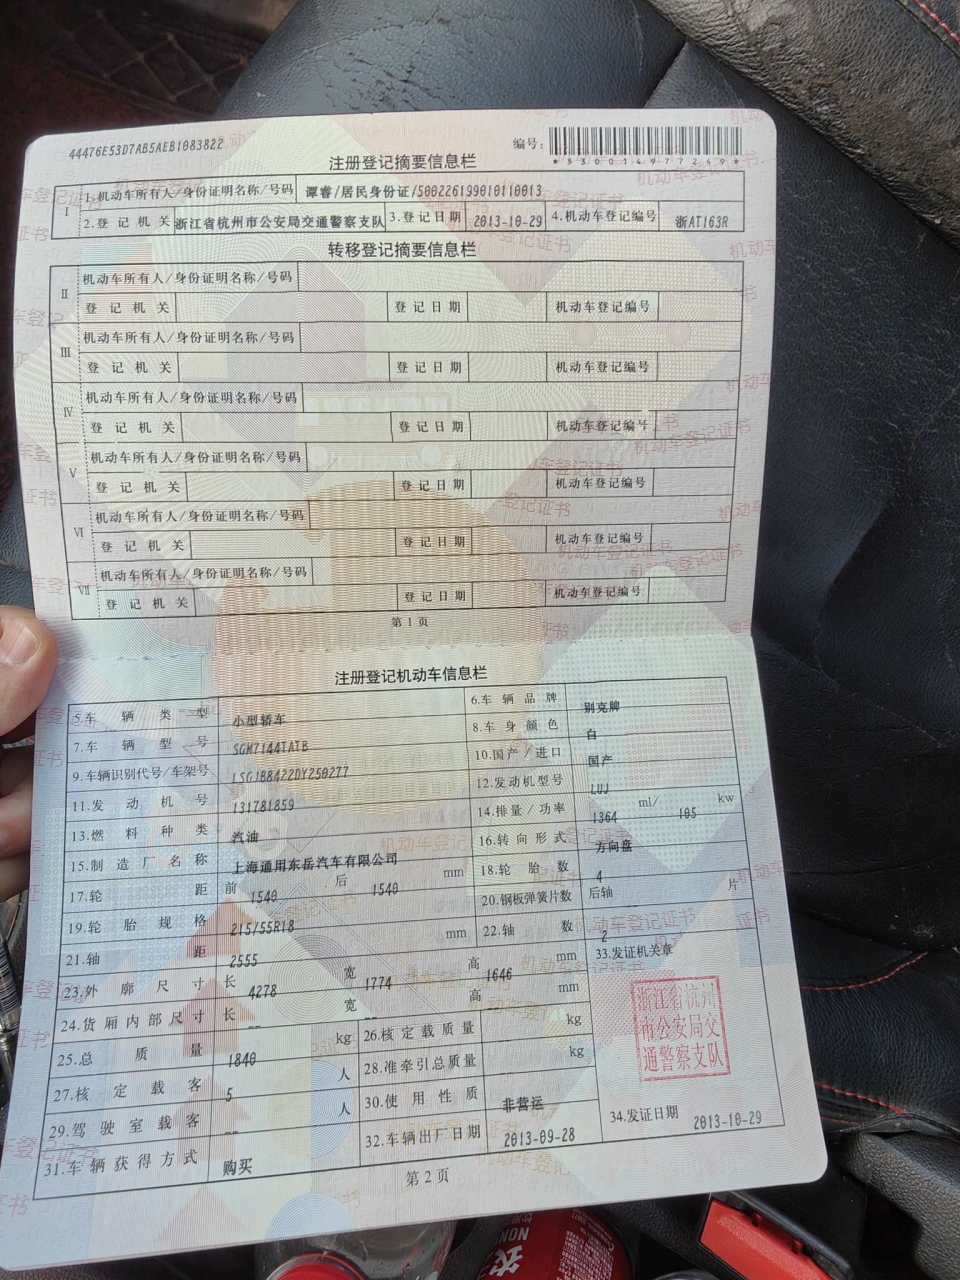 44476E53D7AB5AEB1083822
编号:
*330014977249*
注册登记摘要信息栏
I
1.机动车所有人/身份证明名称/号码 谭睿/居民身份证/500226199010110013
2.登记机关 浙江省杭州市公安局交通警察支队 3.登记日期 2013-10-29 4.机动车登记编号 浙AT163R
转移登记摘要信息栏
II
机动车所有人/身份证明名称/号码
登记机关 登记日期 机动车登记编号
III
机动车所有人/身份证明名称/号码
登记机关 登记日期 机动车登记编号
IV
机动车所有人/身份证明名称/号码
登记机关 登记日期 机动车登记编号
V
机动车所有人/身份证明名称/号码
登记机关 登记日期 机动车登记编号
VI
机动车所有人/身份证明名称/号码
登记机关 登记日期 机动车登记编号
VII
机动车所有人/身份证明名称/号码
登记机关 登记日期 机动车登记编号
第1页
注册登记机动车信息栏
5.车辆类型 小型轿车 6.车辆品牌 别克牌
7.车辆型号 SGM7144TATB 8.车身颜色 白
9.车辆识别代号/车架号 LSGJB8422DY250277 10.国产/进口 国产
11.发动机号 131781859 12.发动机型号 LUJ
13.燃料种类 汽油 14.排量/功率 1364 ml/ 105 kw
15.制造厂名称 上海通用东岳汽车有限公司 16.转向形式 方向盘
17.轮距 前 1540 后 1540 mm 18.轮胎数 4
19.轮胎规格 215/55R18 20.钢板弹簧片数 后轴 片
21.轴距 2555 mm 22.轴数 2
23.外廓尺寸 长 4278 宽 1774 高 1646 mm 33.发证机关章
24.货厢内部尺寸 长 -- 宽 -- 高 -- mm
浙江省杭州
市公安局交
通警察支队
25.总质量 1840 kg 26.核定载质量 -- kg
27.核定载客 5 人 28.准牵引总质量 -- kg
29.驾驶室载客 -- 人 30.使用性质 非营运
31.车辆获得方式 购买 32.车辆出厂日期 2013-09-28 34.发证日期 2013-10-29
第2页